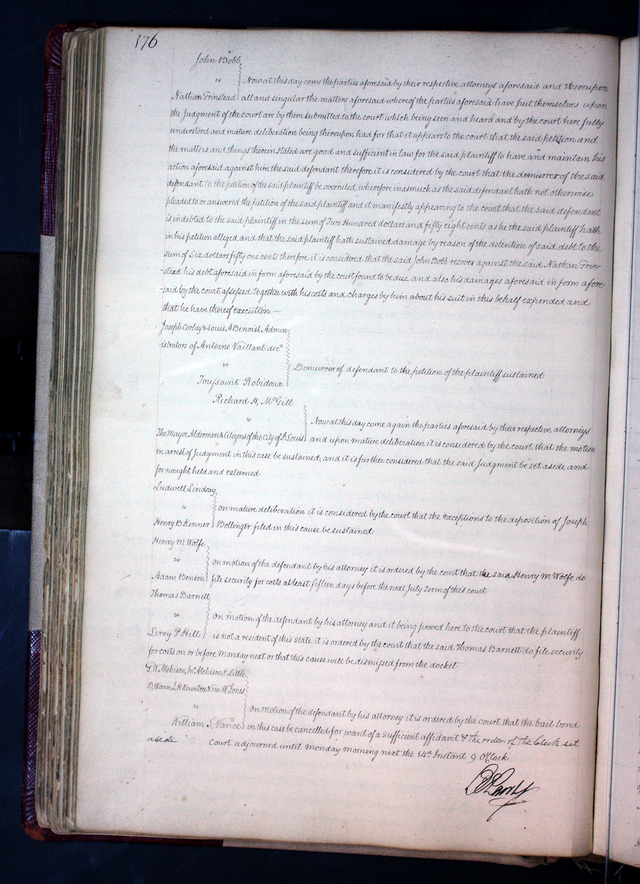 176
John Bobb
vs
Now at this day come the parties aforesaid by their respective attorneys aforesaid and thereupon
Nathan Frinstead all and singular the matters aforesaid whereof the parties aforesaid have put themselves upon
the judgment of the court are by them submitted to the court which being seen and heard and by the court here fully
understood and mature deliberation being thereupon had for that it appears to the court that the said petition and
the matters and things therein stated are good and sufficient in law for the said plaintiff to have and maintain his
action aforesaid against him the said defendant therefore it is considered by the court that the demurrer of the said
defendant to the petition of the said plaintiff be overruled, wherefore inasmuch as the said defendant hath not otherwise
pleaded to or answered the petition of the said plaintiff and it manifestly appearing to the court that the said defendant
is indebted to the said plaintiff in the sum of Two Hundred dollars and fifty eight cents as he the said plaintiff hath
in his petition alleged and that the said plaintiff hath sustained damage by reason of the detention of said debt to the
sum of Six dollars fifty one cents therefore it is considered that the said John Bobb recover against the said Nathan Frin-
stead his debt aforesaid in form aforesaid by the court found to be due and also his damages aforesaid in form afore-
said by the court assessed together with his costs and charges by him about his suit in this behalf expended and
that he have thereof execution —
Joseph Corley & Louis A Benoist Admin
istrators of Antoine Vaillant decd
vs Demurrer of defendant to the petition of the plaintiff sustained
Toussaint Robidoux
Richard H. McGill
vs Now at this day come again the parties aforesaid by their respective attorneys
The Mayor Aldermen & Citizens of the City of St Louis and upon mature deliberation it is considered by the court that the motion
in arrest of judgment in this case be sustained, and it is further considered that the said Judgment be set aside and
for nought held and esteemed
Ludwell Lindsay
vs on mature deliberation it is considered by the court that the exceptions to the deposition of Joseph
Henry B Kenner Bollinger filed in this cause be sustained
Henry M. Wolfe
vs on motion of the defendant by his attorney it is ordered by the court that the said Henry M. Wolfe do
Adam Benson file security for costs at least fifteen days before the next July Term of this court
Thomas Barnett
vs on motion of the defendant by his attorney and it being proved here to the court that the plaintiff
Leroy P. Hill is not a resident of this state it is ordered by the court that the said Thomas Barnett do file security
for costs on or before Monday next or that this cause will be dismissed from the docket
Wm Mehison E. Little
Jones
vs on motion of the defendant by his attorney it is ordered by the court that the bail bond
William S. Vance in this case be cancelled for want of a sufficient affidavit & the order of the clerk set
aside Court adjourned until Monday morning next the 14th Instant 9 O'Clock